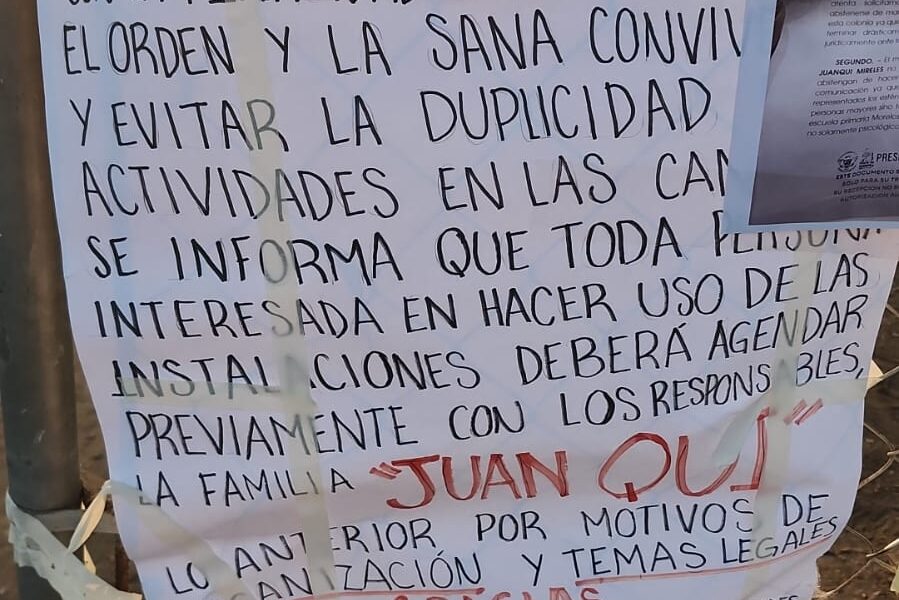 EL ORDEN Y LA SANA CONVIV
Y EVITAR LA DUPLICIDAD
ACTIVIDADES EN LAS CAN
SE INFORMA QUE TODA PERSONA
INTERESADA EN HACER USO DE LAS
INSTALACIONES DEBERÁ AGENDAR
PREVIAMENTE CON LOS RESPONSABLES,
LA FAMILIA "JUAN QUI"
LO ANTERIOR POR MOTIVOS DE
GANIZACIÓN Y TEMAS LEGALES
GRACIAS
atenta
abstenerse de
esta colonia ya que
terminar
jurídicamente ante
SEGUNDO. - El
JUANQUI MIRELES no
abstengan de hacer
comunicación ya que
representados los
personas mayores sino
escuela primaria Morelos
no solamente psicológico
PRES
ESTE DOCUMENTO
SOLO PARA SU
SU RECEPCIÓN NO
AUTORIZACIÓN